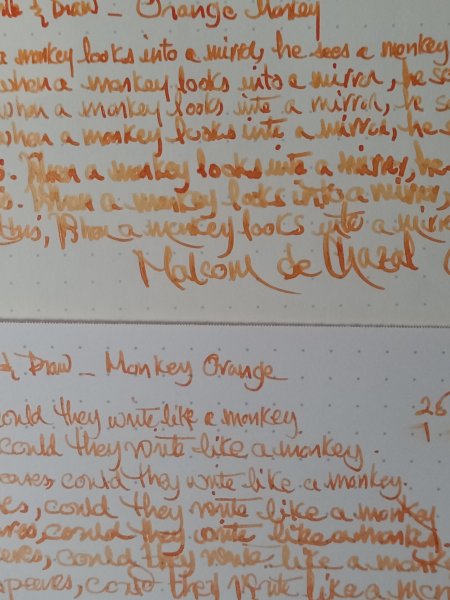 & Draw - Orange Monkey
a monkey looks into a mirror, he sees a monkey
when a monkey looks into a mirror, he se
when a monkey looks into a mirror, he se
when a monkey looks into a mirror, he s
s. When a monkey looks into a mirror, he
s. When a monkey looks into a mirror,
this, When a monkey looks into a mirro
Malcom de Chazal
& Draw - Monkey Orange
could they write like a monkey
25
could they write like a monkey.
1
could they write like a monkey.
es, could they write like a monkey
could they write like a monkey.
could they write like a monk
speares, could they write like a mon